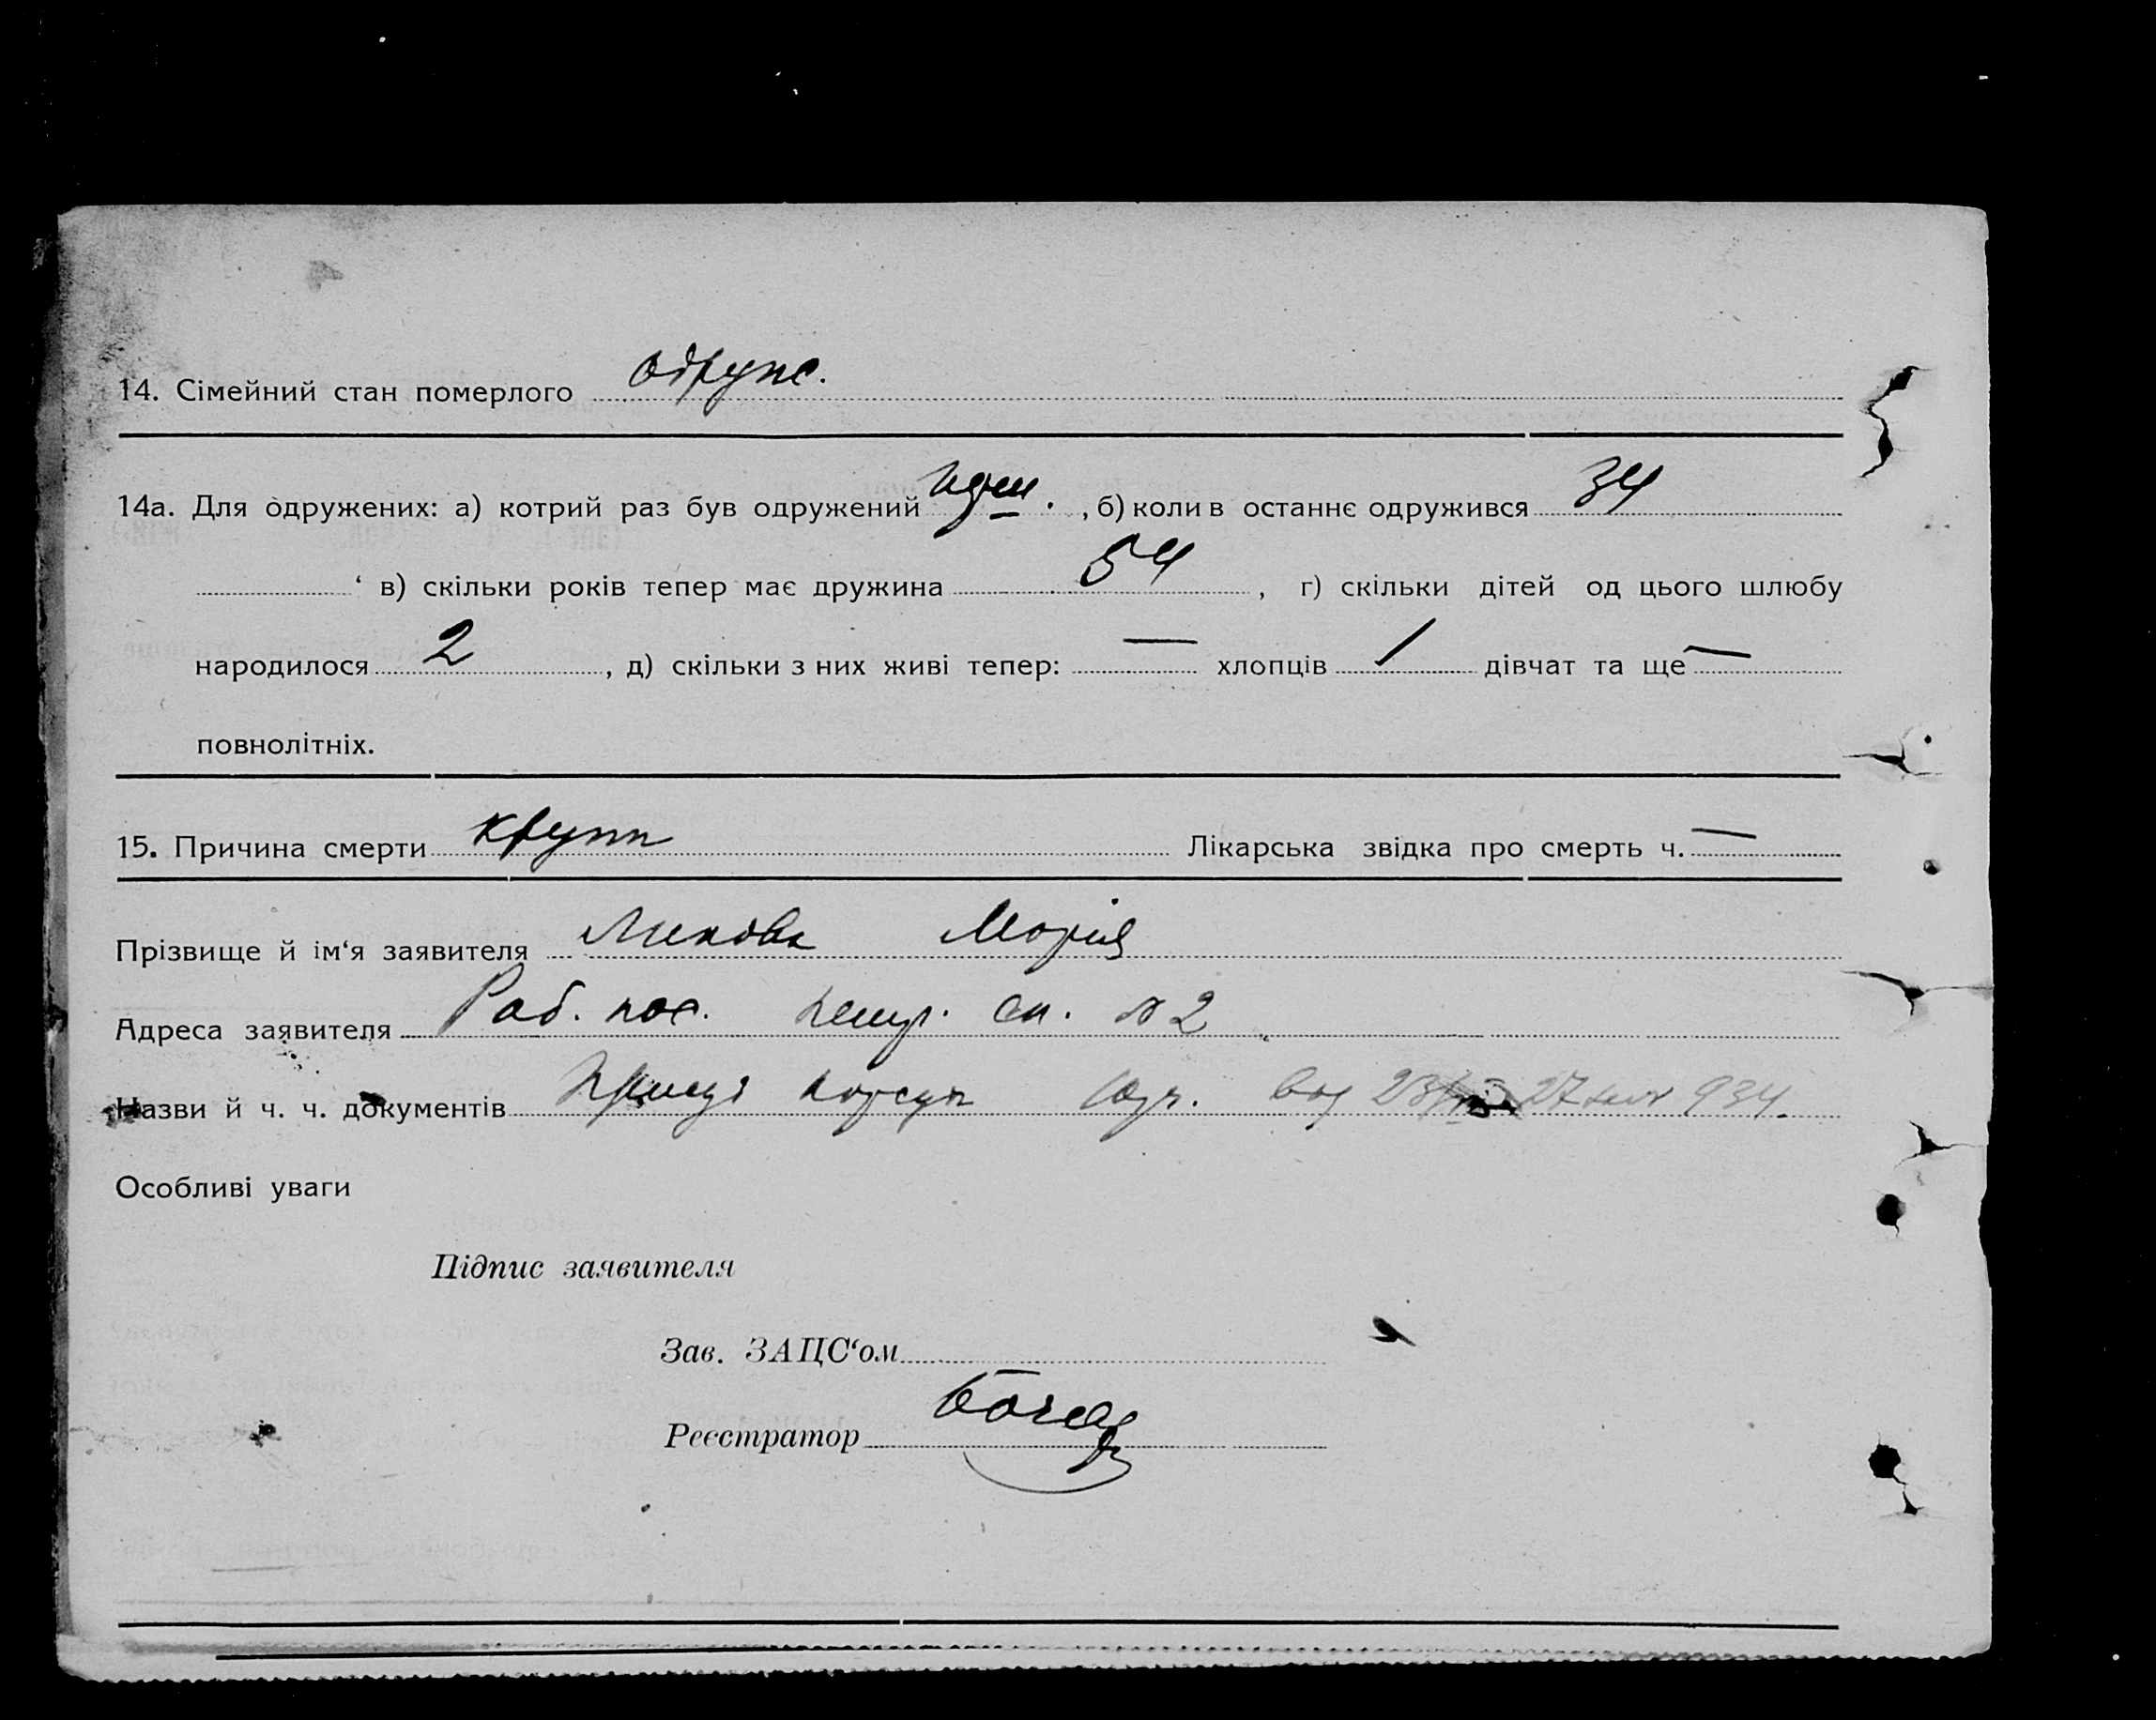 14. Сімейний стан померлого одруж.
14а. Для одружених: а) котрий раз був одружений , б) коли в останнє одружився 34
в) скільки років тепер має дружина 54, г) скільки дітей од цього шлюбу
народилося 2, д) скільки з них живі тепер: — хлопців 1 дівчат та ще —
повнолітніх.
15. Причина смерти крупп Лікарська звідка про смерть ч. —
Прізвище й ім‘я заявителя Марія
Адреса заявителя Раб. пос. №2
Назви й ч. ч. документів 934.
Особливі уваги
Підпис заявителя
Зав. ЗАЦС‘ом
Реєстратор